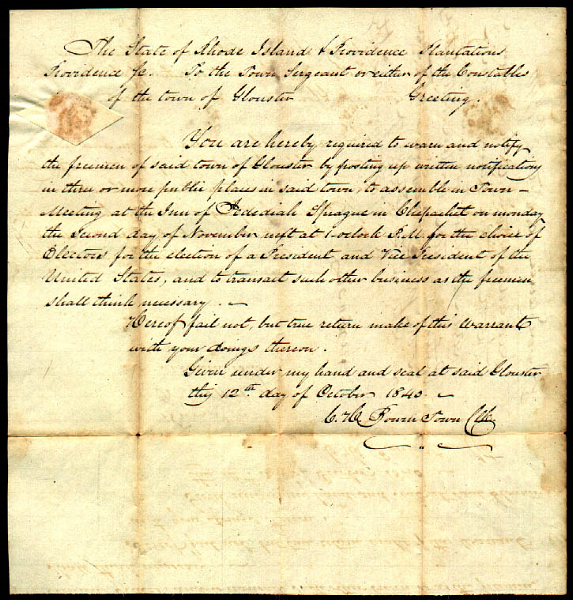 The State of Rhode Island & Providence Plantations
Providence Sc. To the Town Sergeant or either of the Constables
of the town of Glouster Greeting.
You are hereby required to warn and notify
the freemen of said town of Glouster by posting up written notification
in three or more public places in said town, to assemble in Town-
Meeting at the Inn of Jedediah Sprague in Chepachet on monday
the Second day of November next at 1 oclock P.M. for the choice of
Electors for the election of a President and Vice President of the
United States, and to transact such other business as the freemen
shall think necessary.
Hereof fail not, but true return make of this Warrant
with your doings thereon.
Given under my hand and seal at said Glouster
this 12th day of October 1840
C. H. Bowen Town Clk